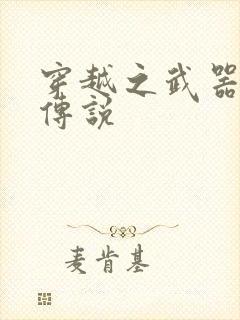 穿越之武器
傳說
麦肯基